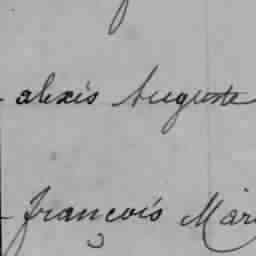 alexis Auguste
françois Mar